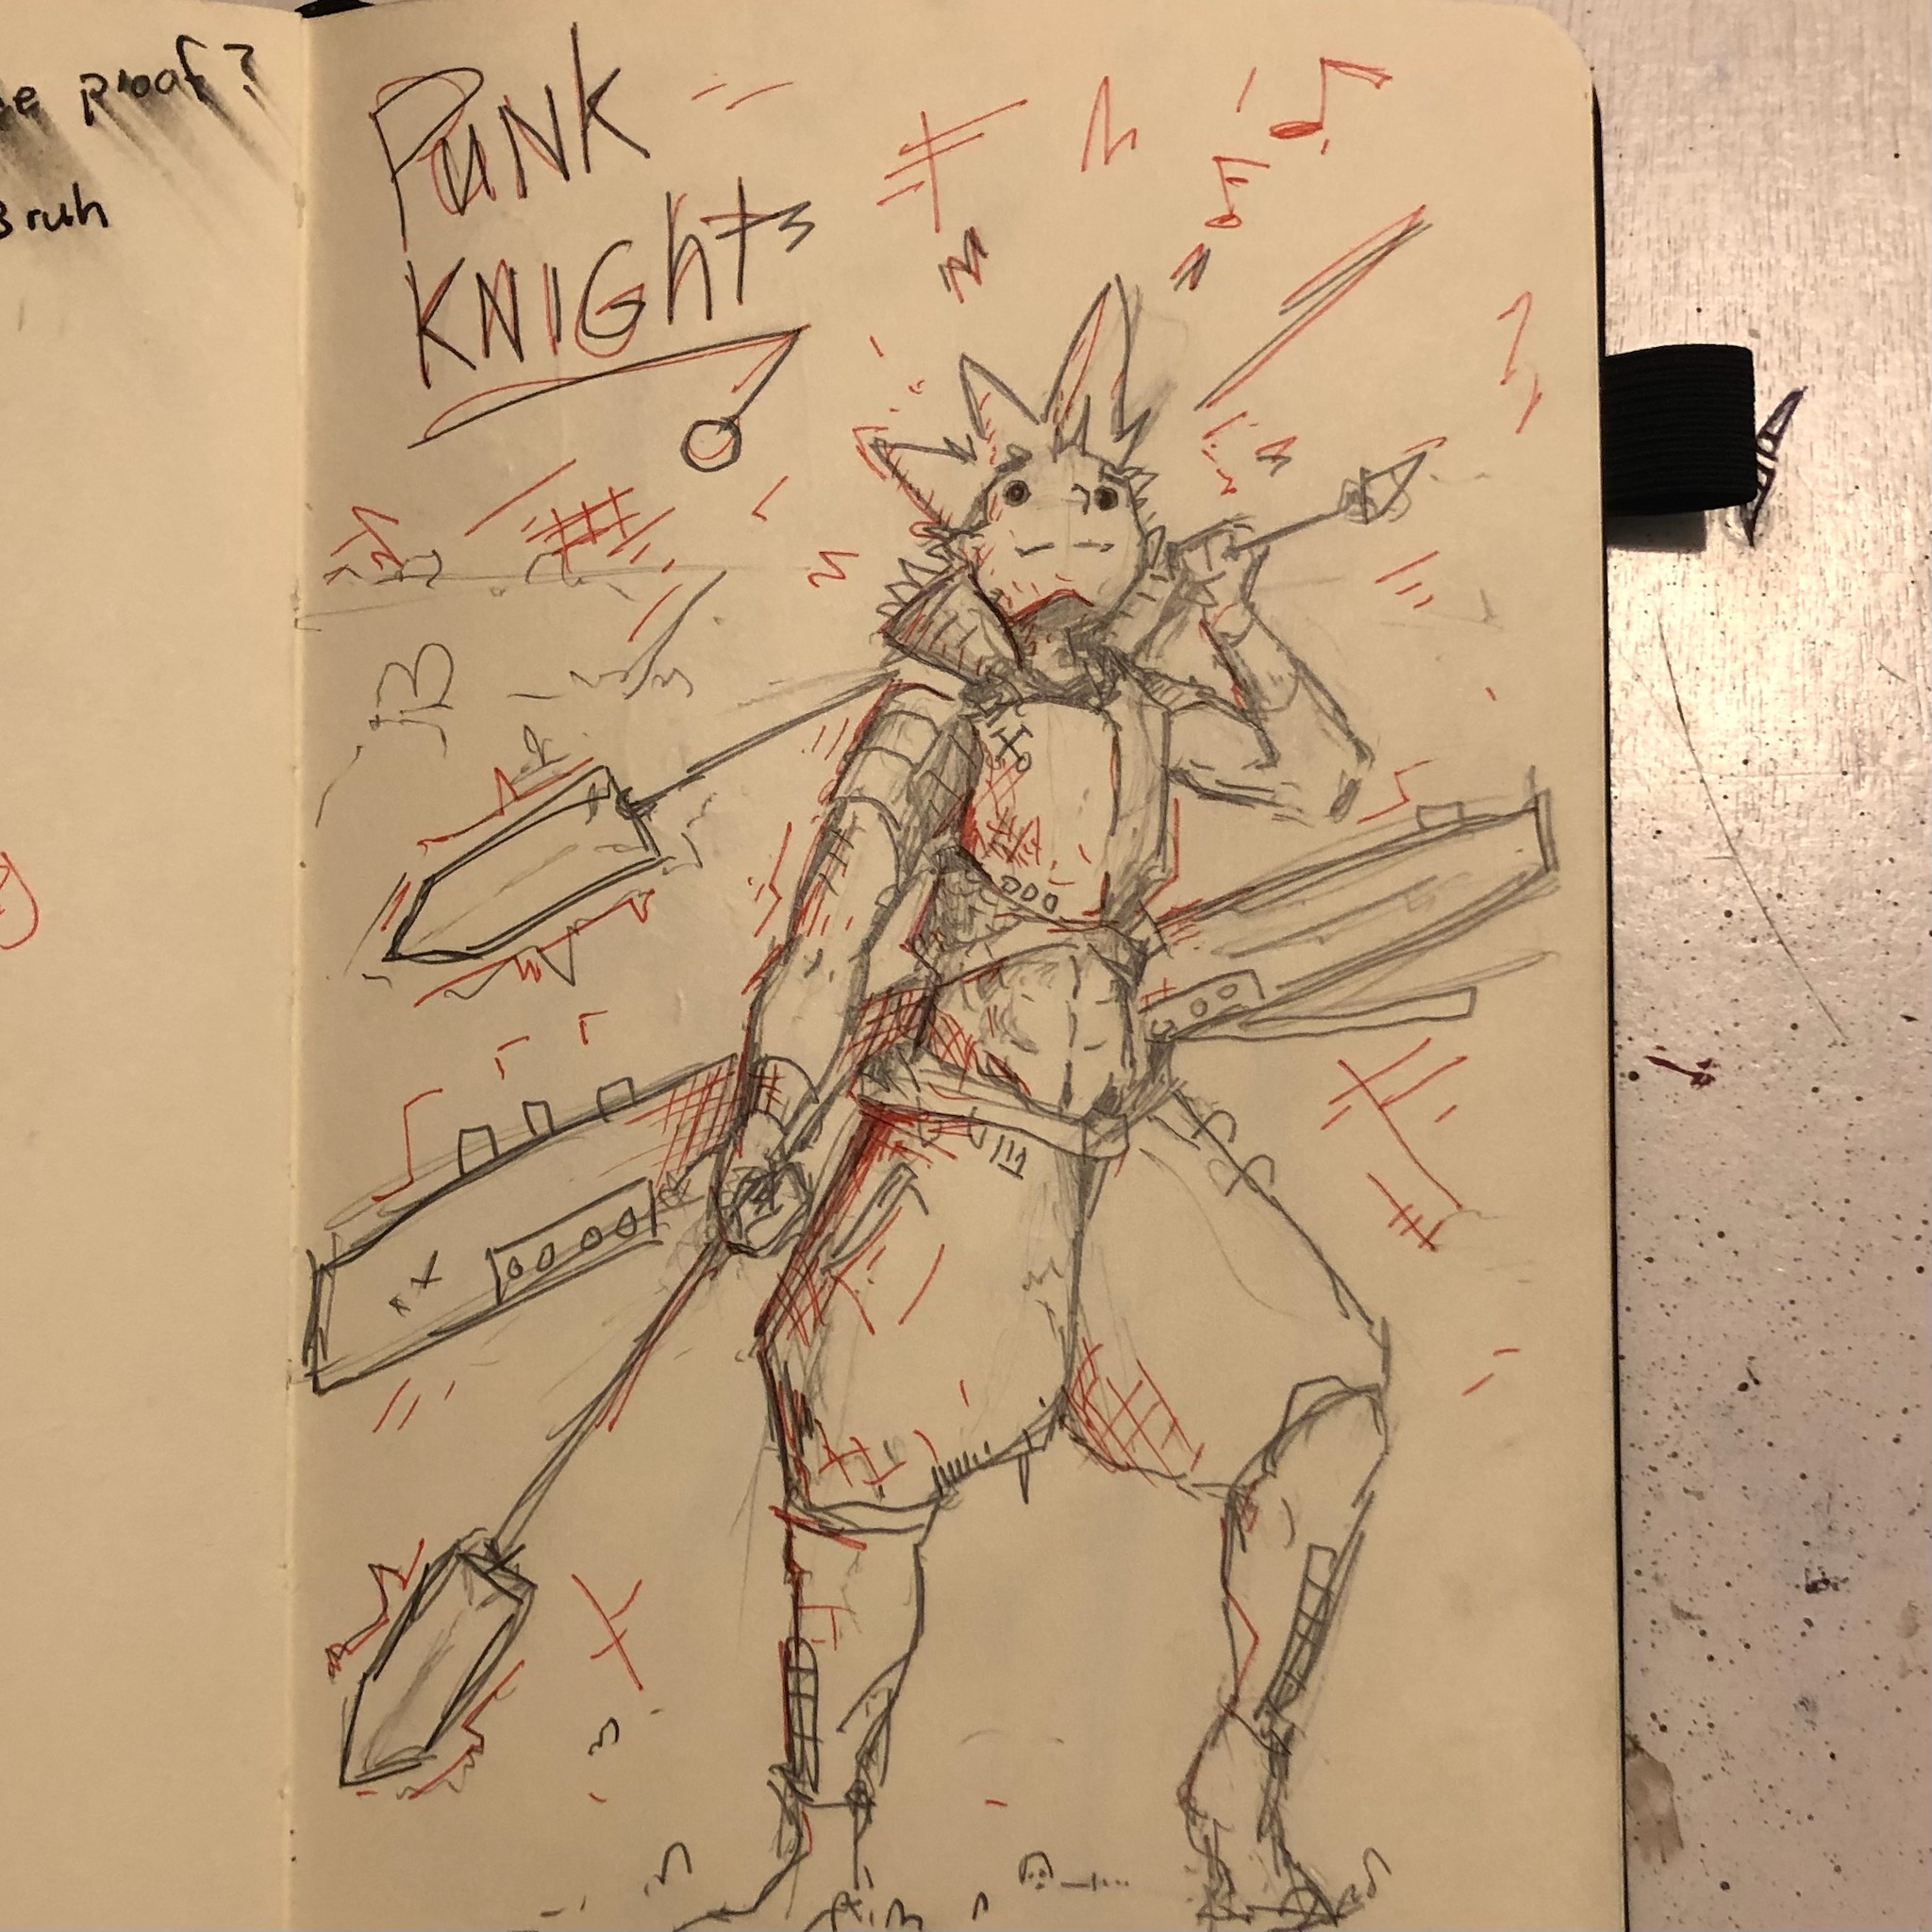 proof?
Bruh
PUNK
KNIGHts
JB